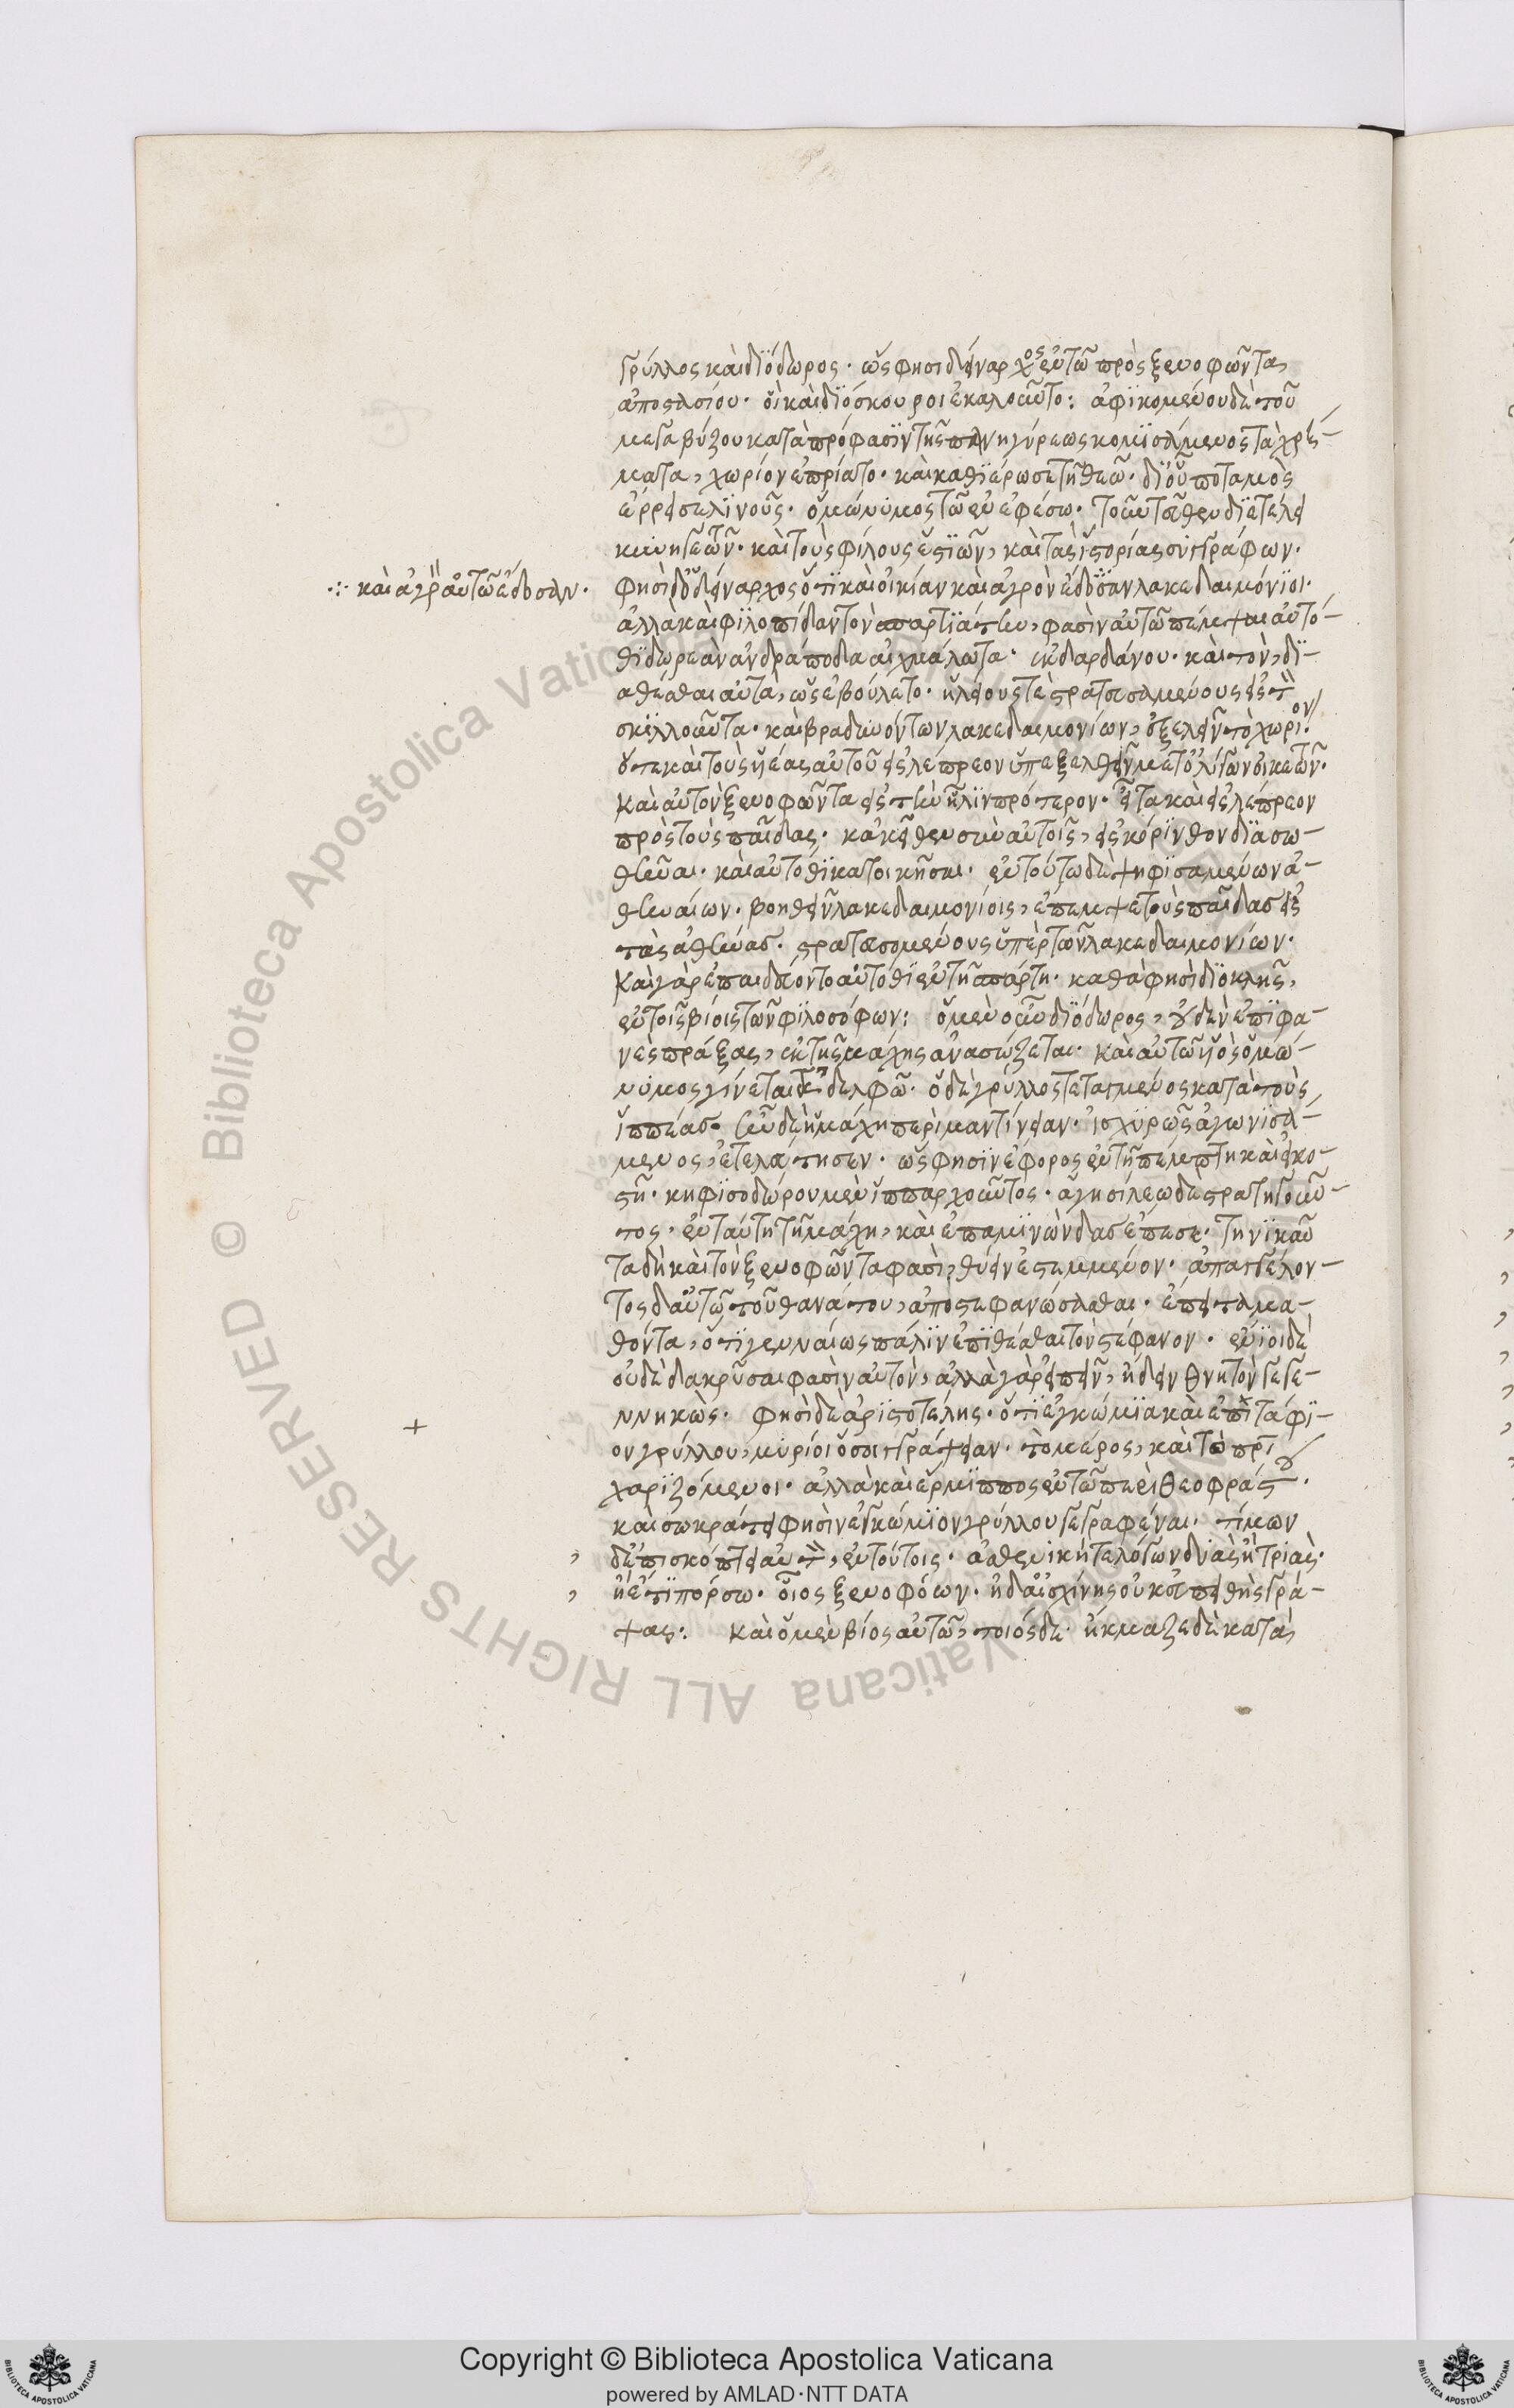 Γρύλλος καὶ διόδωρος· ὥς φησι δείναρχος ἐν τῶ πρὸς ξενοφῶντα
ἀποστασίου· οἳ καὶ διόσκουροι ἐκαλοῦντο: ἀφικομένου δὲ τοῦ
μεγαβύζου κατὰ πρόφασιν τῆς πανηγύρεως κομισάμενος τὰ χρή-
ματα, χωρίον ἐπρίατο· καὶ καθιέρωσε τῆ θεῶ· δι' οὗ ποταμὸς
ἔρρει σελινοῦς· ὁμώνυμος τῶ ἐν ἐφέσω· τοὐντεῦθεν διετέλει
κυνηγετῶν· καὶ τοὺς φίλους ἑστιῶν, καὶ τὰς ἱστορίας συγγράφων·
∴ καὶ ἀγρὸν αὐτῶ ἔδοσαν·
φησὶ δ' ὁ δείναρχος ὅτι καὶ οἰκίαν καὶ ἀγρὸν ἔδοσαν λακεδαιμόνιοι·
ἀλλὰ καὶ φιλοπίδαν τὸν σπαρτιάτην, φασὶν αὐτῶ πέμψαι αὐτό-
θι δωρεὰν ἀνδράποδα αἰχμάλωτα· ἐκ δαρδάνου· καὶ τὸν, δι-
αθέσθαι αὐτὰ, ὡς ἐβούλετο· ἠλείους τε στρατευσαμένους εἰς τὸν
σκιλλοῦντα· καὶ βραδυνόντων λακεδαιμονίων, ἐξελεῖν τὸ χωρίον·
ὅτε καὶ τοὺς υἱέας αὐτοῦ εἰς λέπρεον ὑπεξελθεῖν μετ' ὀλίγων οἰκετῶν·
καὶ αὐτὸν ξενοφῶντα εἰς τὴν ἦλιν πρότερον· εἶτα καὶ εἰς λέπρεον
πρὸς τοὺς παῖδας· κἀκεῖθεν σὺν αὐτοῖς, εἰς κόρινθον διασω-
θῆναι· καὶ αὐτόθι κατοικῆσαι· ἐν τούτω δὲ ψηφισαμένων ἀ-
θηναίων· βοηθεῖν λακεδαιμονίοις, ἔπεμψε τοὺς παῖδας εἰς
τὰς ἀθήνας· στρατευσομένους ὑπὲρ τῶν λακεδαιμονίων·
καὶ γὰρ ἐπαιδεύοντο αὐτόθι ἐν τῆ σπάρτη· καθά φησι διοκλῆς,
ἐν τοῖς βίοις τῶν φιλοσόφων: ὁ μὲν οὖν διόδωρος, οὐδὲν ἐπιφα-
νὲς πράξας, ἐκ τῆς μάχης ἀνασώζεται· καὶ αὐτῶ υἱὸς ὁμώ-
νυμος γίνεται τἀδελφῶ· ὁ δὲ γρύλλος τεταγμένος κατὰ τοὺς
ἱππέας· ἦν δὲ ἡ μάχη περὶ μαντίνειαν· ἰσχυρῶς ἀγωνισά-
μενος, ἐτελεύτησεν· ὥς φησιν ἔφορος ἐν τῆ πέμπτη καὶ εἰκο-
στῆ· κηφισοδώρου μὲν ἱππαρχοῦντος· ἀγησίλεω δὲ στρατηγοῦν-
τος· ἐν ταύτη τῆ μάχη, καὶ ἐπαμινώνδας ἔπεσε· τηνικαῦ
τα δὴ καὶ τὸν ξενοφῶντα φασὶ, θύειν ἐστεμμένον· ἀπαγγέλον-
τος δ' αὐτῶ τοῦ θανάτου, ἀποστεφανώσασθαι· ἔπειτα μα-
θόντα, ὅτι γενναίως πάλιν ἐπιθέσθαι τὸν στέφανον· ἔνιοι δὲ
οὐδὲ δακρῦσαι φασὶν αὐτὸν, ἀλλὰ γὰρ εἰπεῖν, ἤδειν θνητὸν γεγε-
ννηκώς· φησὶ δὲ ἀριστοτέλης· ὅτι ἐγκώμια καὶ ἐπιτάφι-
ον γρύλλου, μυρίοι ὅσοι συγγράψειαν· τὸ μέρος, καὶ τῶ πρὶ
χαριζόμενοι· ἀλλὰ καὶ ἕρμιππος ἐν τῶ περὶ θεοφράστου·
καὶ σωκράτει φησὶν ἐγκώμιον γρύλλου γεγραφέναι· τίμων
δ' ἐπισκόπτει αὐτὸν, ἐν τούτοις· ἀσθενική τε λόγων δυὰς ἢ τριὰς·
ἢ ἔτι πόρσω· οἷος ξενοφόων· ἠδ' αἰσχίνης οὐκ ἀπειθὴς γρά-
ψας: καὶ ὁ μὲν βίος αὐτῶ, τοιόσδε· ἤκμαζε δὲ κατὰ